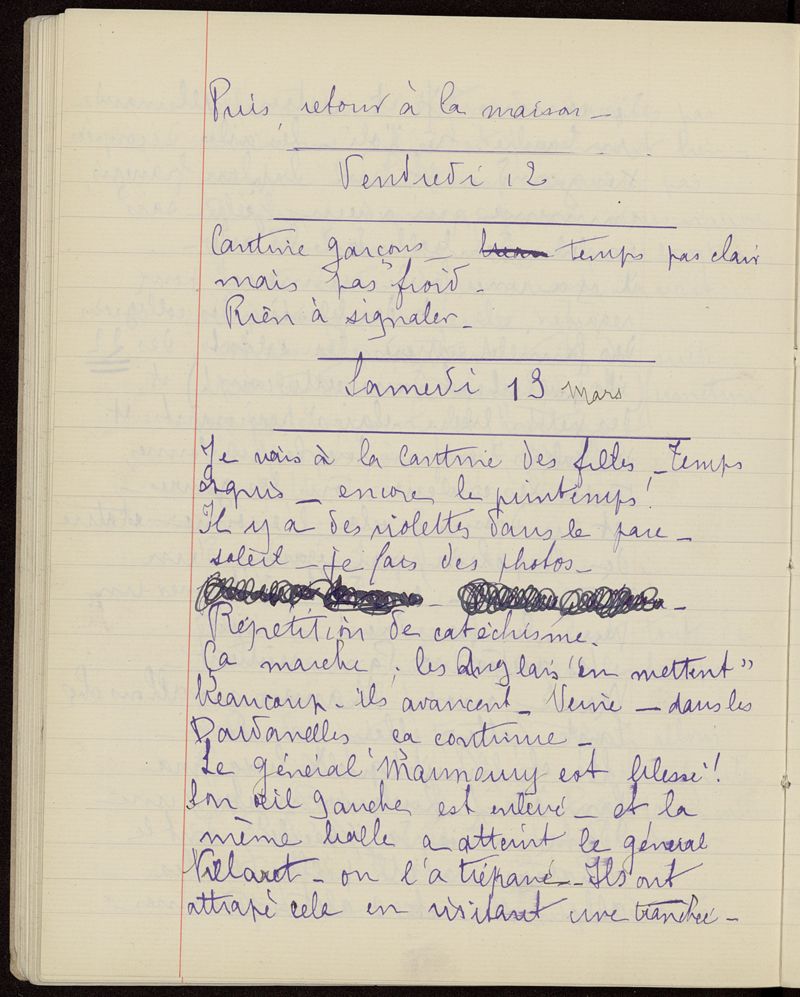 Puis, retour à la maison —
Vendredi 12
Cantine garçons — temps pas clair
mais pas froid.
Rien à signaler.
Samedi 13 Mars
Je vais à la cantine des filles — Temps
exquis — encore le printemps!
Il y a des violettes dans le parc —
soleil — je fais des photos —
Répétition de catéchisme.
Ça marche, les Anglais "en mettent"
beaucoup — ils avancent — Veine — dans les
Dardanelles ça continue —
Le général Maunoury est blessé!
Son œil gauche est enlevé — et la
même balle a atteint le général
Villaret — on l'a trépané — Ils ont
attrapé cela en visitant une tranchée —